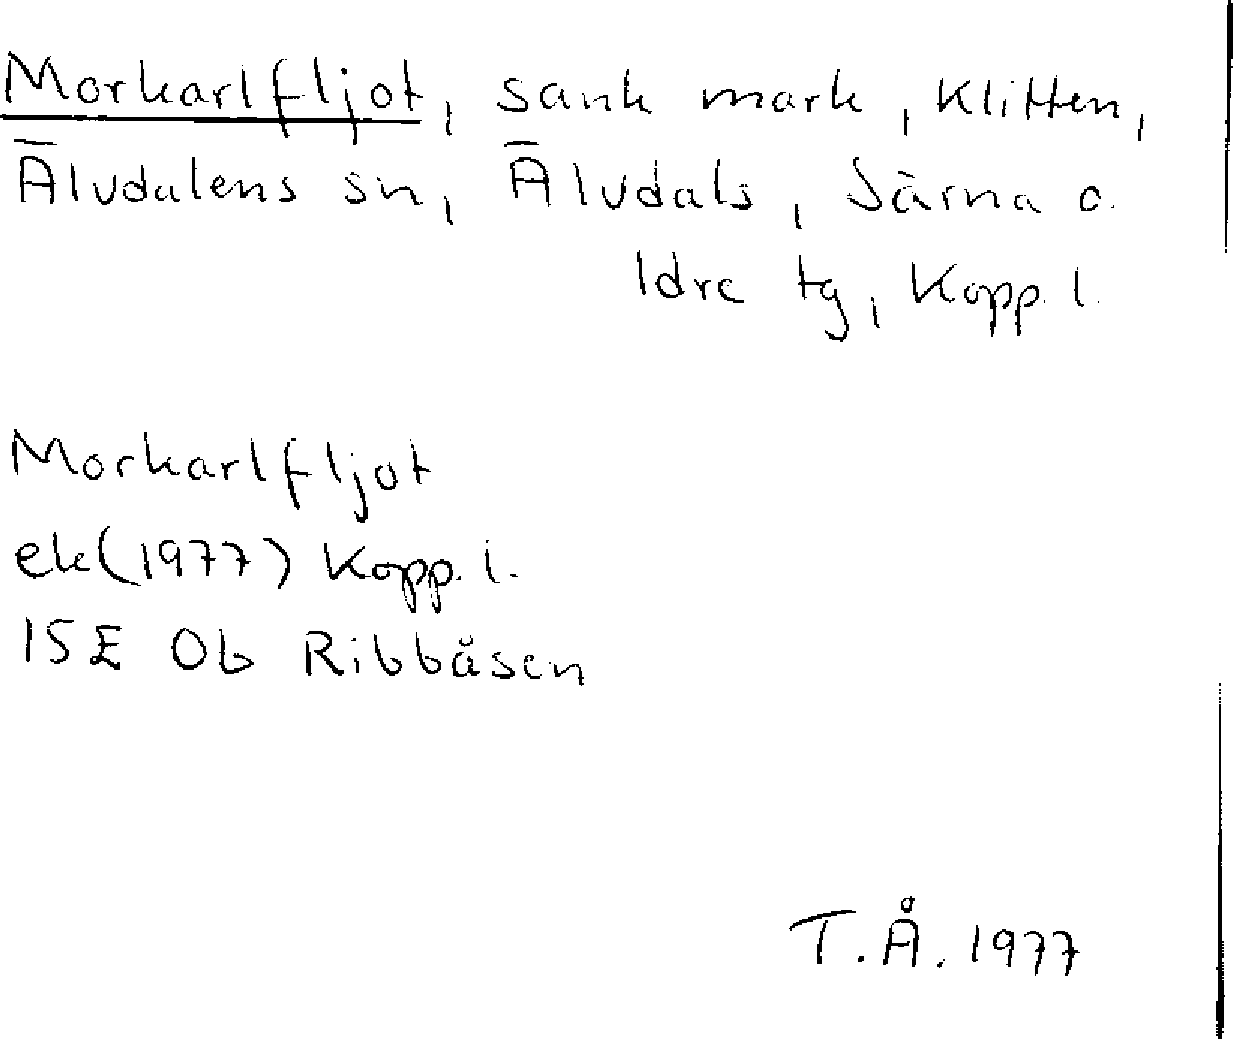 Morkarlfljot, sank mark, Klitten,
Älvdalens sn, Älvdals, Särna o.
Idre tg, Kopp. l.
Morkarlfljot
ek (1977) Kopp. l.
15E 0b Ribbåsen
T.Å. 1977